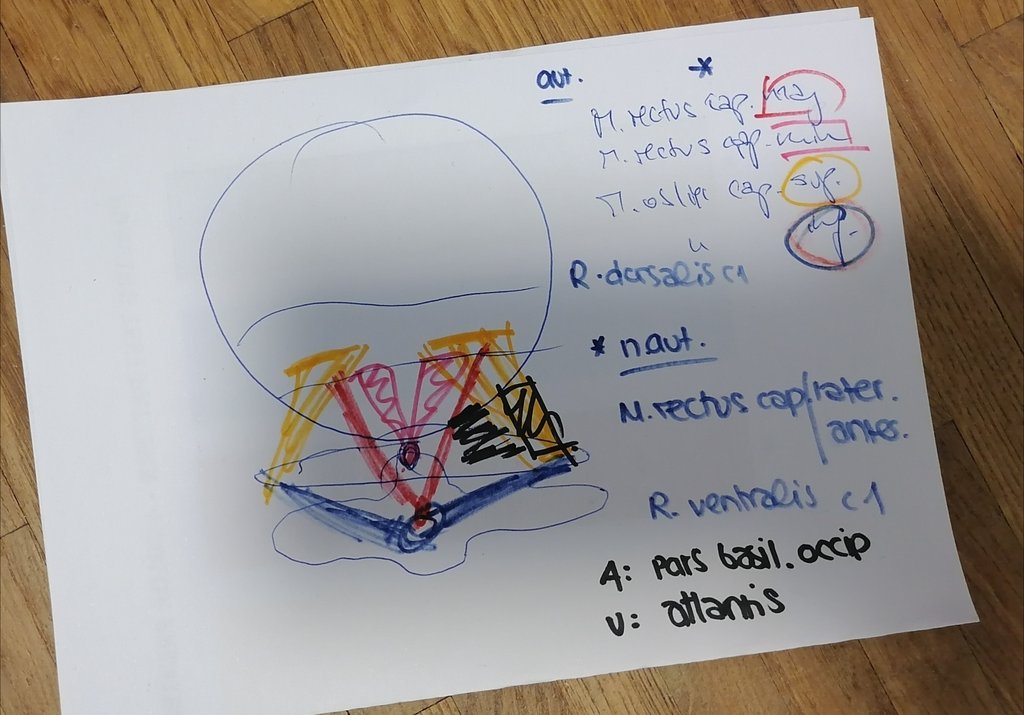 aut. *
M. rectus cap. maj
M. rectus cap. min
cap. sup.
inf.
R. dorsalis c1
* naut.
M. rectus cap/later.
anter.
R. ventralis c1
A: pars basil. occip
U: atlantis